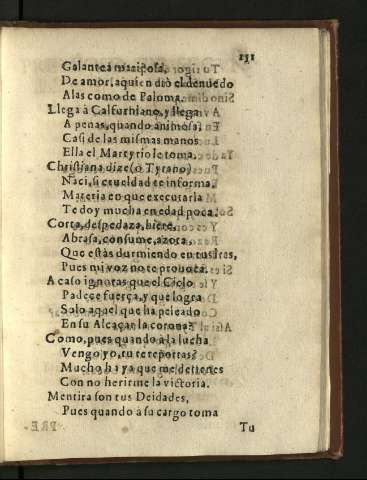 131
Galante à mariposa,
De amor, a quien diò el denuedo
Alas como de Paloma.
Llega à Calfurniano, y llega
A penas, quando animosa,
Casi de las mismas manos
Ella el Martyrio le toma.
Christiana dize (ò Tyrano)
Naci, si crueldad te informa,
Materia en que executarla
Te doy mucha en edad poca.
Corta, despedaza, hiere,
Abrasa, consume, azota,
Que estàs durmiendo en tus Iras,
Pues mi voz no te prouoca.
A caso ignoras que el Cielo
Padece fuerça, y que logra
Solo aquel que ha peleado
En su Alcaçar la corona?
Como, pues quando à la lucha
Vengo yo, tu te reportas?
Mucho ha ya que me detienes
Con no herirme la victoria.
Mentira son tus Deidades,
Pues quando à su cargo toma
Tu